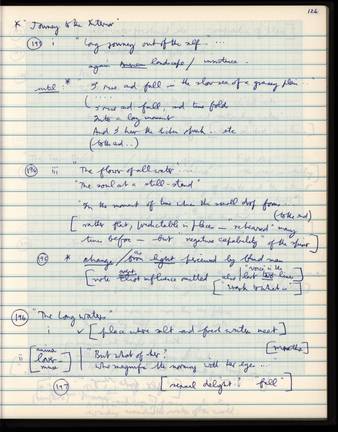 126
* "Journey to the Interior"
(193) i "Long journey out of the self ....
again landscape / 
until: * I rise and fall in the slow sea of a grassy plain
(.....
I rise and fall, and time folds
Into a long moment
And I hear the lichen speak .. etc
(to the end ..)
(194) iii "The flower of all water" ...
"The soul at a still-stand"
"In the moment of time when the small drop forms ...
(to the end)
[rather flat, predictable in places – "rehearsed" many
times before – but "negative capability" of the
(195) * change / from light by blind man
"voice in the
[note that influence omitted also last two lines]
["Wash to which –"]
(196) "The Long Waters"
i ✓ [place where salt and fresh water meet]
[months]
ii [anima
love-
muse] But what of her?
Who magnifies the morning with her eyes ...
(197) [sexual delight? "full"]